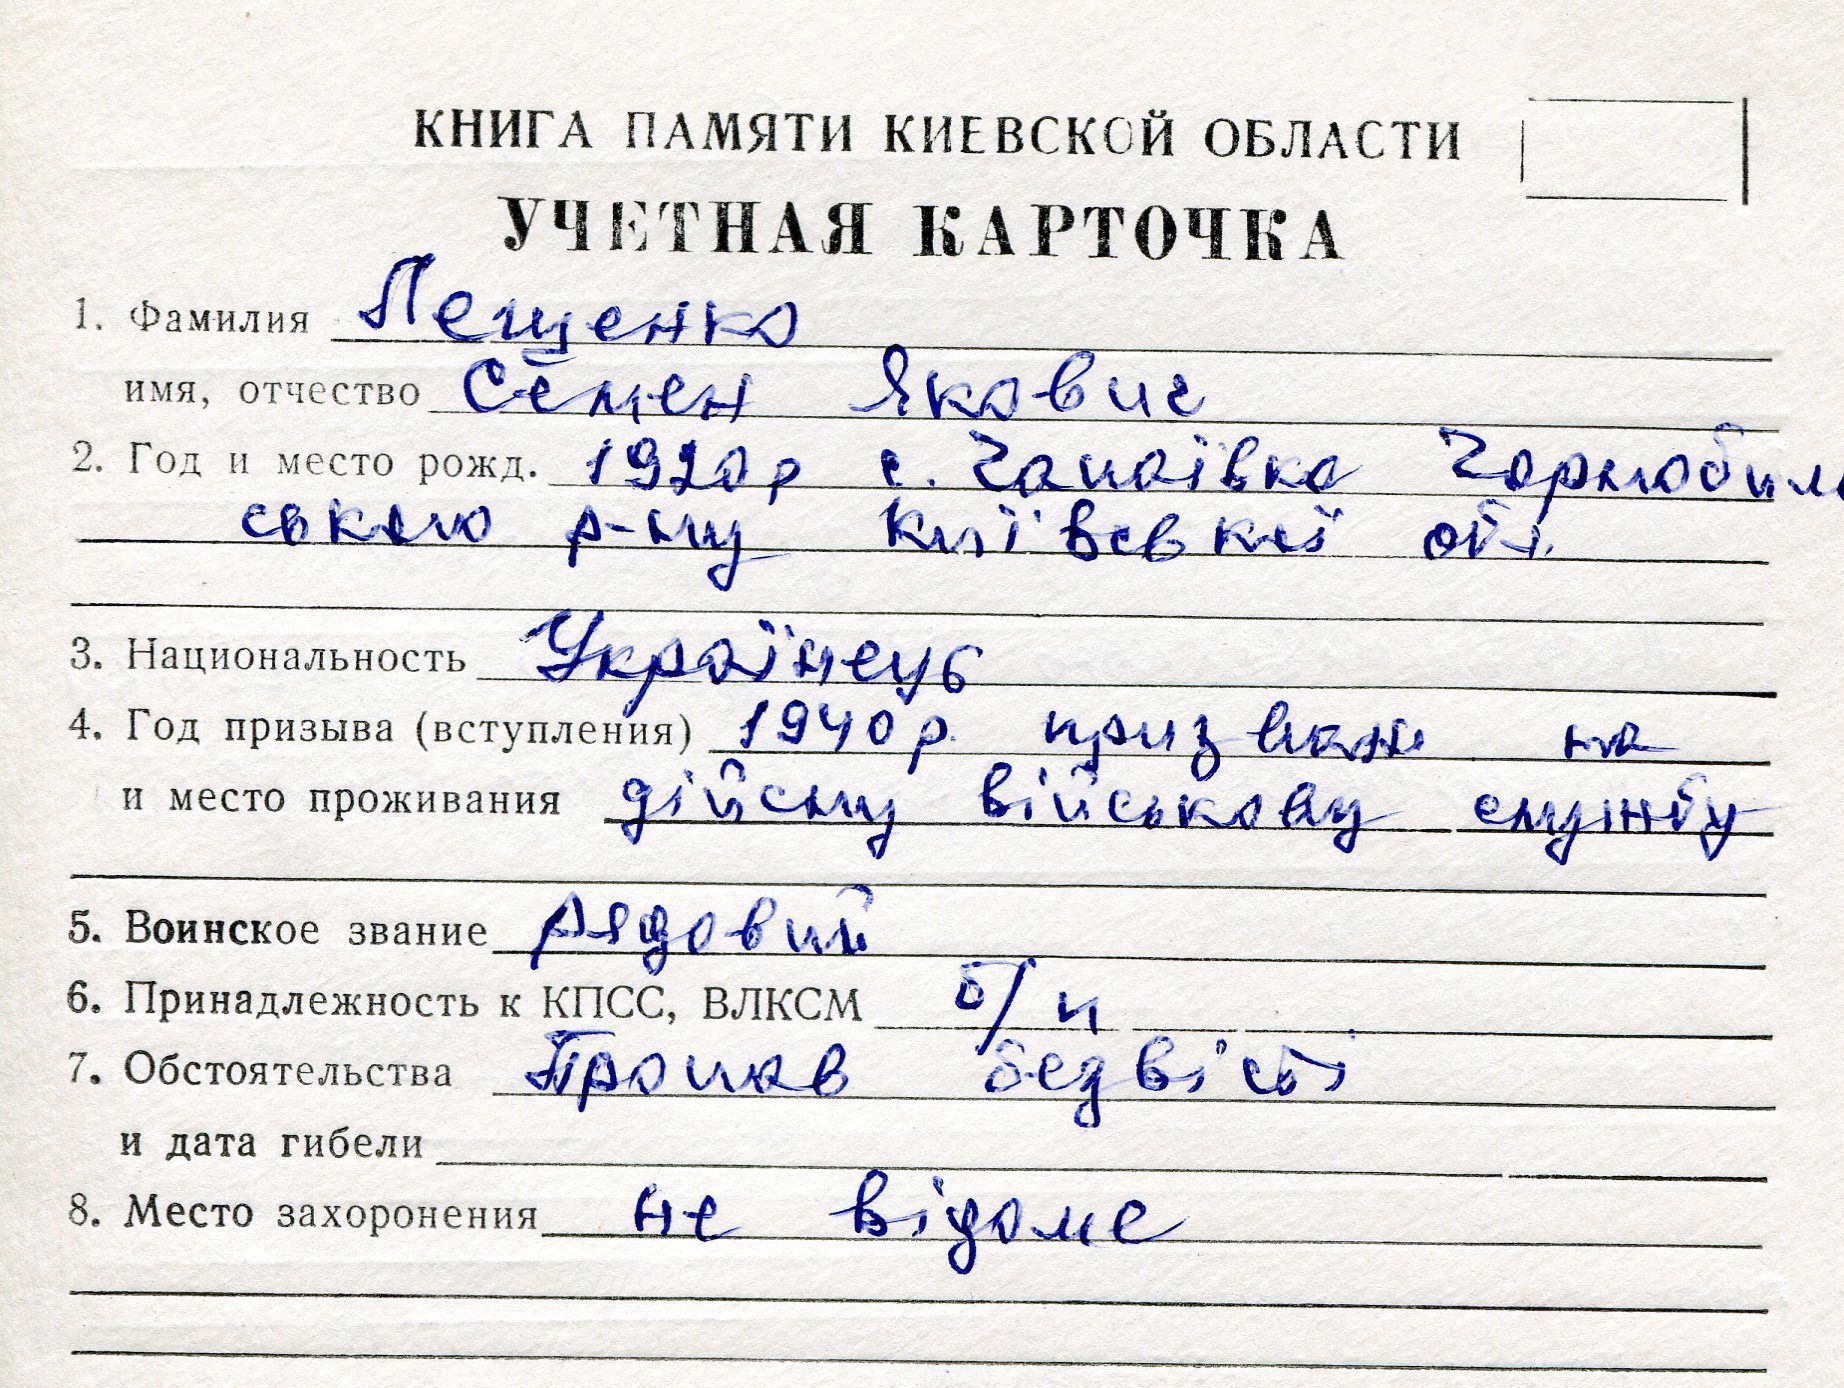 КНИГА ПАМЯТИ КИЕВСКОЙ ОБЛАСТИ
УЧЕТНАЯ КАРТОЧКА
1. Фамилия Лещенко
имя, отчество Семен Якович
2. Год и место рожд. 1920р с. Чапаївка Чорнобиль
ського р-ну Київської обл.
3. Национальность Українець
4. Год призыва (вступления) 1940р. призван на
и место проживания дійсну військову службу
5. Воинское звание рядовий
6. Принадлежность к КПСС, ВЛКСМ б/п
7. Обстоятельства Пропав безвісті
и дата гибели
8. Место захоронения не відоме